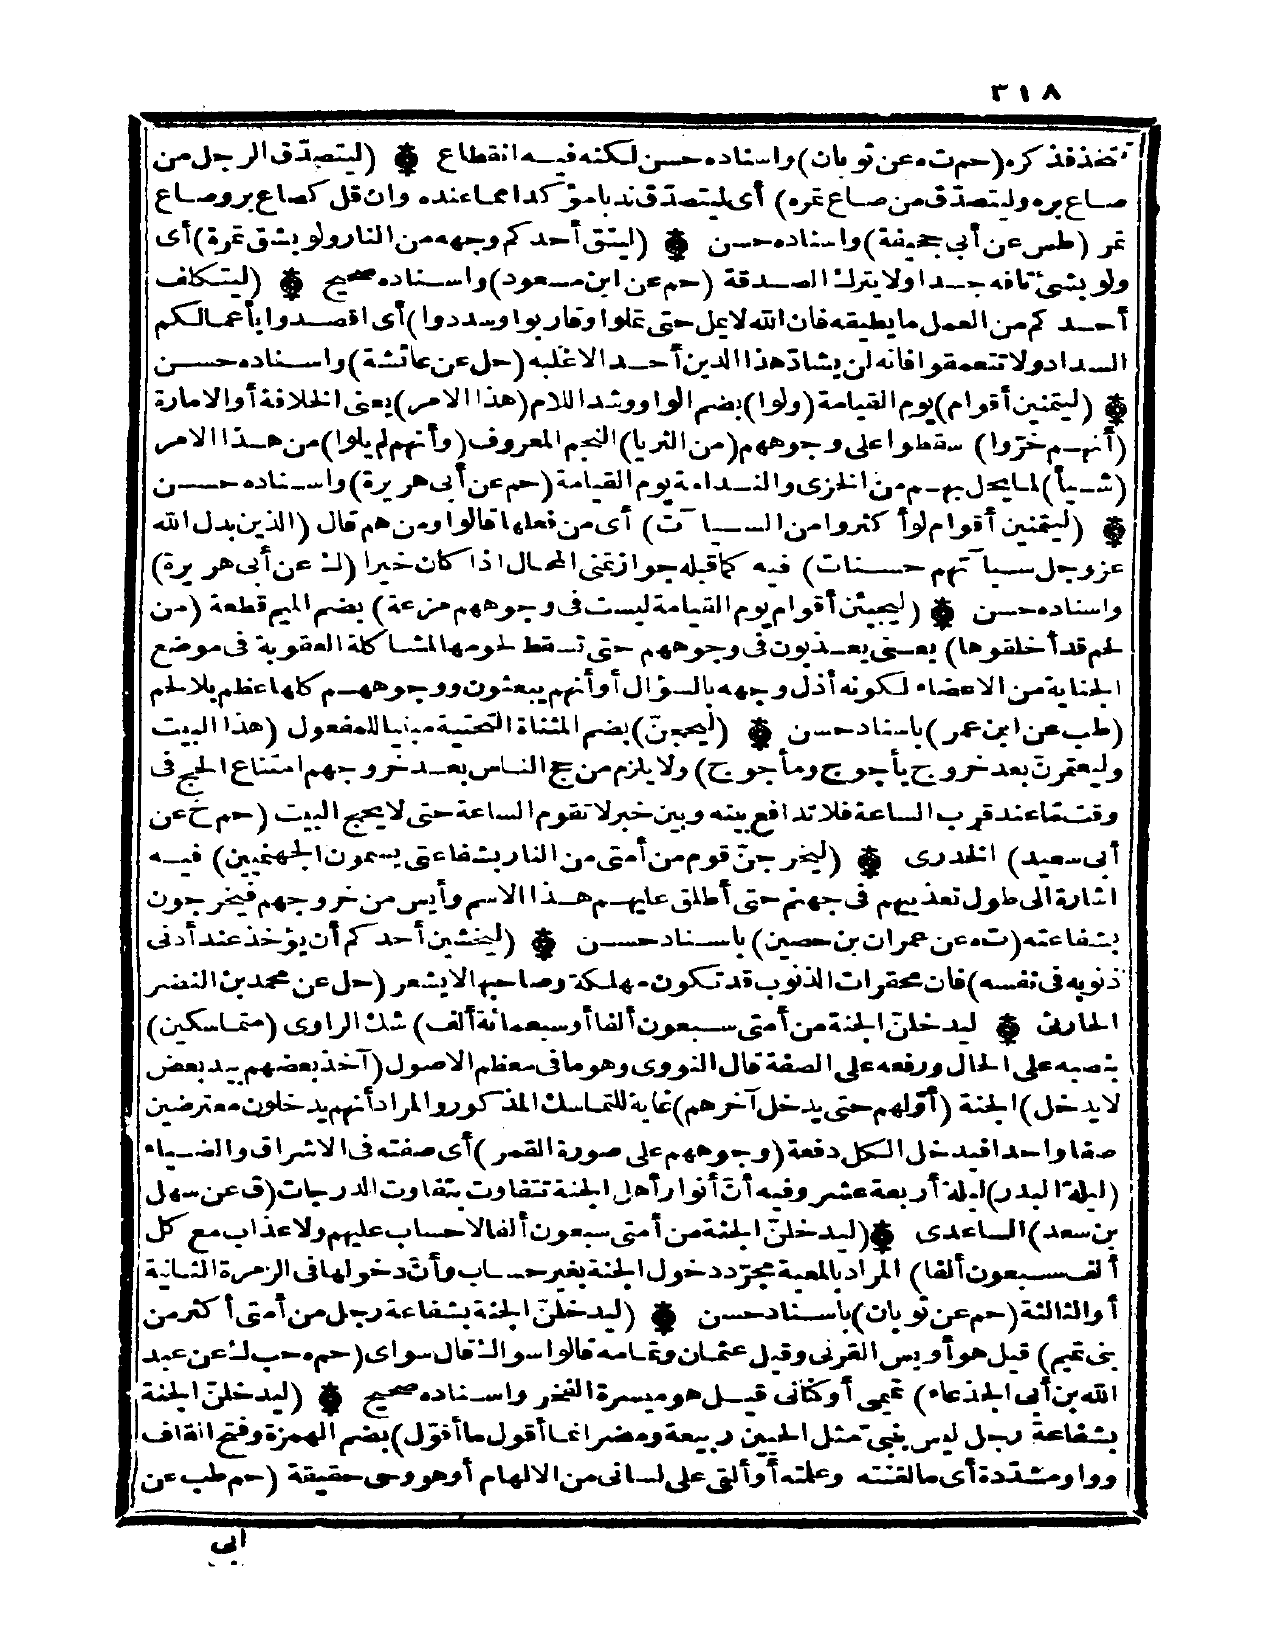 ٣١٨
تتخذ فذكره (حم ت ه عن ثوبان) واسناده حسن لكنه فيه انقطاع ۞ (ليتصدّق الرجل من
صاع بره وليتصدّق من صاع تمره) أى ليتصدّق ندبا مؤكدا مما عنده وان قل كصاع بر وصاع
تمر (طس عن أبى جحيفة) واسناده حسن ۞ (ليتق أحدكم وجهه من النار ولو بشق تمرة) أى
ولو بشئ تافه جدا ولا يترك الصدقة (حم عن ابن مسعود) واسناده صحيح ۞ (ليتكلف
أحدكم من العمل ما يطيقه فان الله لا يمل حتى تملوا وقاربوا وسددوا) أى اقصدوا بأعمالكم
السداد ولا تتعمقوا فانه لن يشادّ هذا الدين أحد الا غلبه (حل عن عائشة) واسناده حسن
۞ (ليتمنين أقوام) يوم القيامة (ولوا) بضم الواو وشد اللام (هذا الامر) يعنى الخلافة أو الامارة
(أنهم خرّوا) سقطوا على وجوههم (من الثريا) النجم المعروف (وأنهم لم يلوا) من هذا الامر
(شيأ) لما يحل بهم من الخزى والندامة يوم القيامة (حم عن أبى هريرة) واسناده حسن
۞ (ليتمنين أقوام لو أكثروا من السيآت) أى من فعلها قالوا ومن هم قال (الذين بدل الله
عز وجل سيآتهم حسنات) فيه كما قبله جواز تمنى المحال اذا كان خيرا (ك عن أبى هريرة)
واسناده حسن ۞ (ليجيئن أقوام يوم القيامة ليست فى وجوههم مزعة) بضم الميم قطعة (من
لحم قد أخلقوها) يعنى يعذبون فى وجوههم حتى تسقط لحومها لمشاكلة العقوبة فى موضع
الجناية من الاعضاء لكونه أذل وجهه بالسؤال أو أنهم يبعثون ووجوههم كلها عظم بلا لحم
(طب عن ابن عمر) باسناد حسن ۞ (ليحجنّ) بضم المثناة التحتية مبنيا للمفعول (هذا البيت
وليعتمرن بعد خروج يأجوج ومأجوج) ولا يلزم من حج الناس بعد خروجهم امتناع الحج فى
وقت مّا عند قرب الساعة فلا تدافع بينه وبين خبر لا تقوم الساعة حتى لا يحج البيت (حم خ عن
أبى سعيد) الخدرى ۞ (ليخرجنّ قوم من أمتى من النار بشفاعتى يسمون الجهنميين) فيه
اشارة الى طول تعذيبهم فى جهنم حتى أطلق عليهم هذا الاسم وأيس من خروجهم فيخرجون
بشفاعته (ت ه عن عمران بن حصين) باسناد حسن ۞ (ليخشين أحدكم أن يؤخذ عند أدنى
ذنوبه فى نفسه) فان محقرات الذنوب قد تكون مهلكة وصاحبها لا يشعر (حل عن محمد بن النضر
الحارثى ۞ ليدخلنّ الجنة من أمتى سبعون ألفا أو سبعمائة ألف) شك الراوى (متماسكين)
بنصبه على الحال ورفعه على الصفة قال النووى وهو ما فى معظم الاصول (آخذ بعضهم بيد بعض
لا يدخل) الجنة (أوّلهم حتى يدخل آخرهم) غاية للتماسك المذكور والمراد أنهم يدخلون معترضين
صفا واحدا فيدخل الكل دفعة (وجوههم على صورة القمر) أى صفته فى الاشراق والضياء
(ليلة البدر) ليلة أربعة عشر وفيه أنّ أنوار أهل الجنة تتفاوت بتفاوت الدرجات (ق عن سهل
بن سعد) الساعدى ۞ (ليدخلنّ الجنة من أمتى سبعون ألفا لا حساب عليهم ولا عذاب مع كل
ألف سبعون ألفا) المراد بالمعية مجرّد دخول الجنة بغير حساب وأنّ دخولها فى الزمرة الثانية
أو الثالثة (حم عن ثوبان) باسناد حسن ۞ (ليدخلنّ الجنة بشفاعة رجل من أمتى أكثر من
بنى تميم) قيل هو أويس القرنى وقيل عثمان وتمامه قالوا سواك قال سواى (حم ه حب ك عن عبد
الله بن أبى الجذعاء) تميمى أو كنانى قيل هو ميسرة الفخر واسناده صحيح ۞ (ليدخلنّ الجنة
بشفاعة رجل ليس بنبىّ مثل الحيين ربيعة ومضر انما أقول ما أقوّل) بضم الهمزة وفتح القاف
وواو مشدّدة أى ما لقنته وعلمته أو ألقى على لسانى من الالهام أو هو وحى حقيقة (حم طب عن
ابى